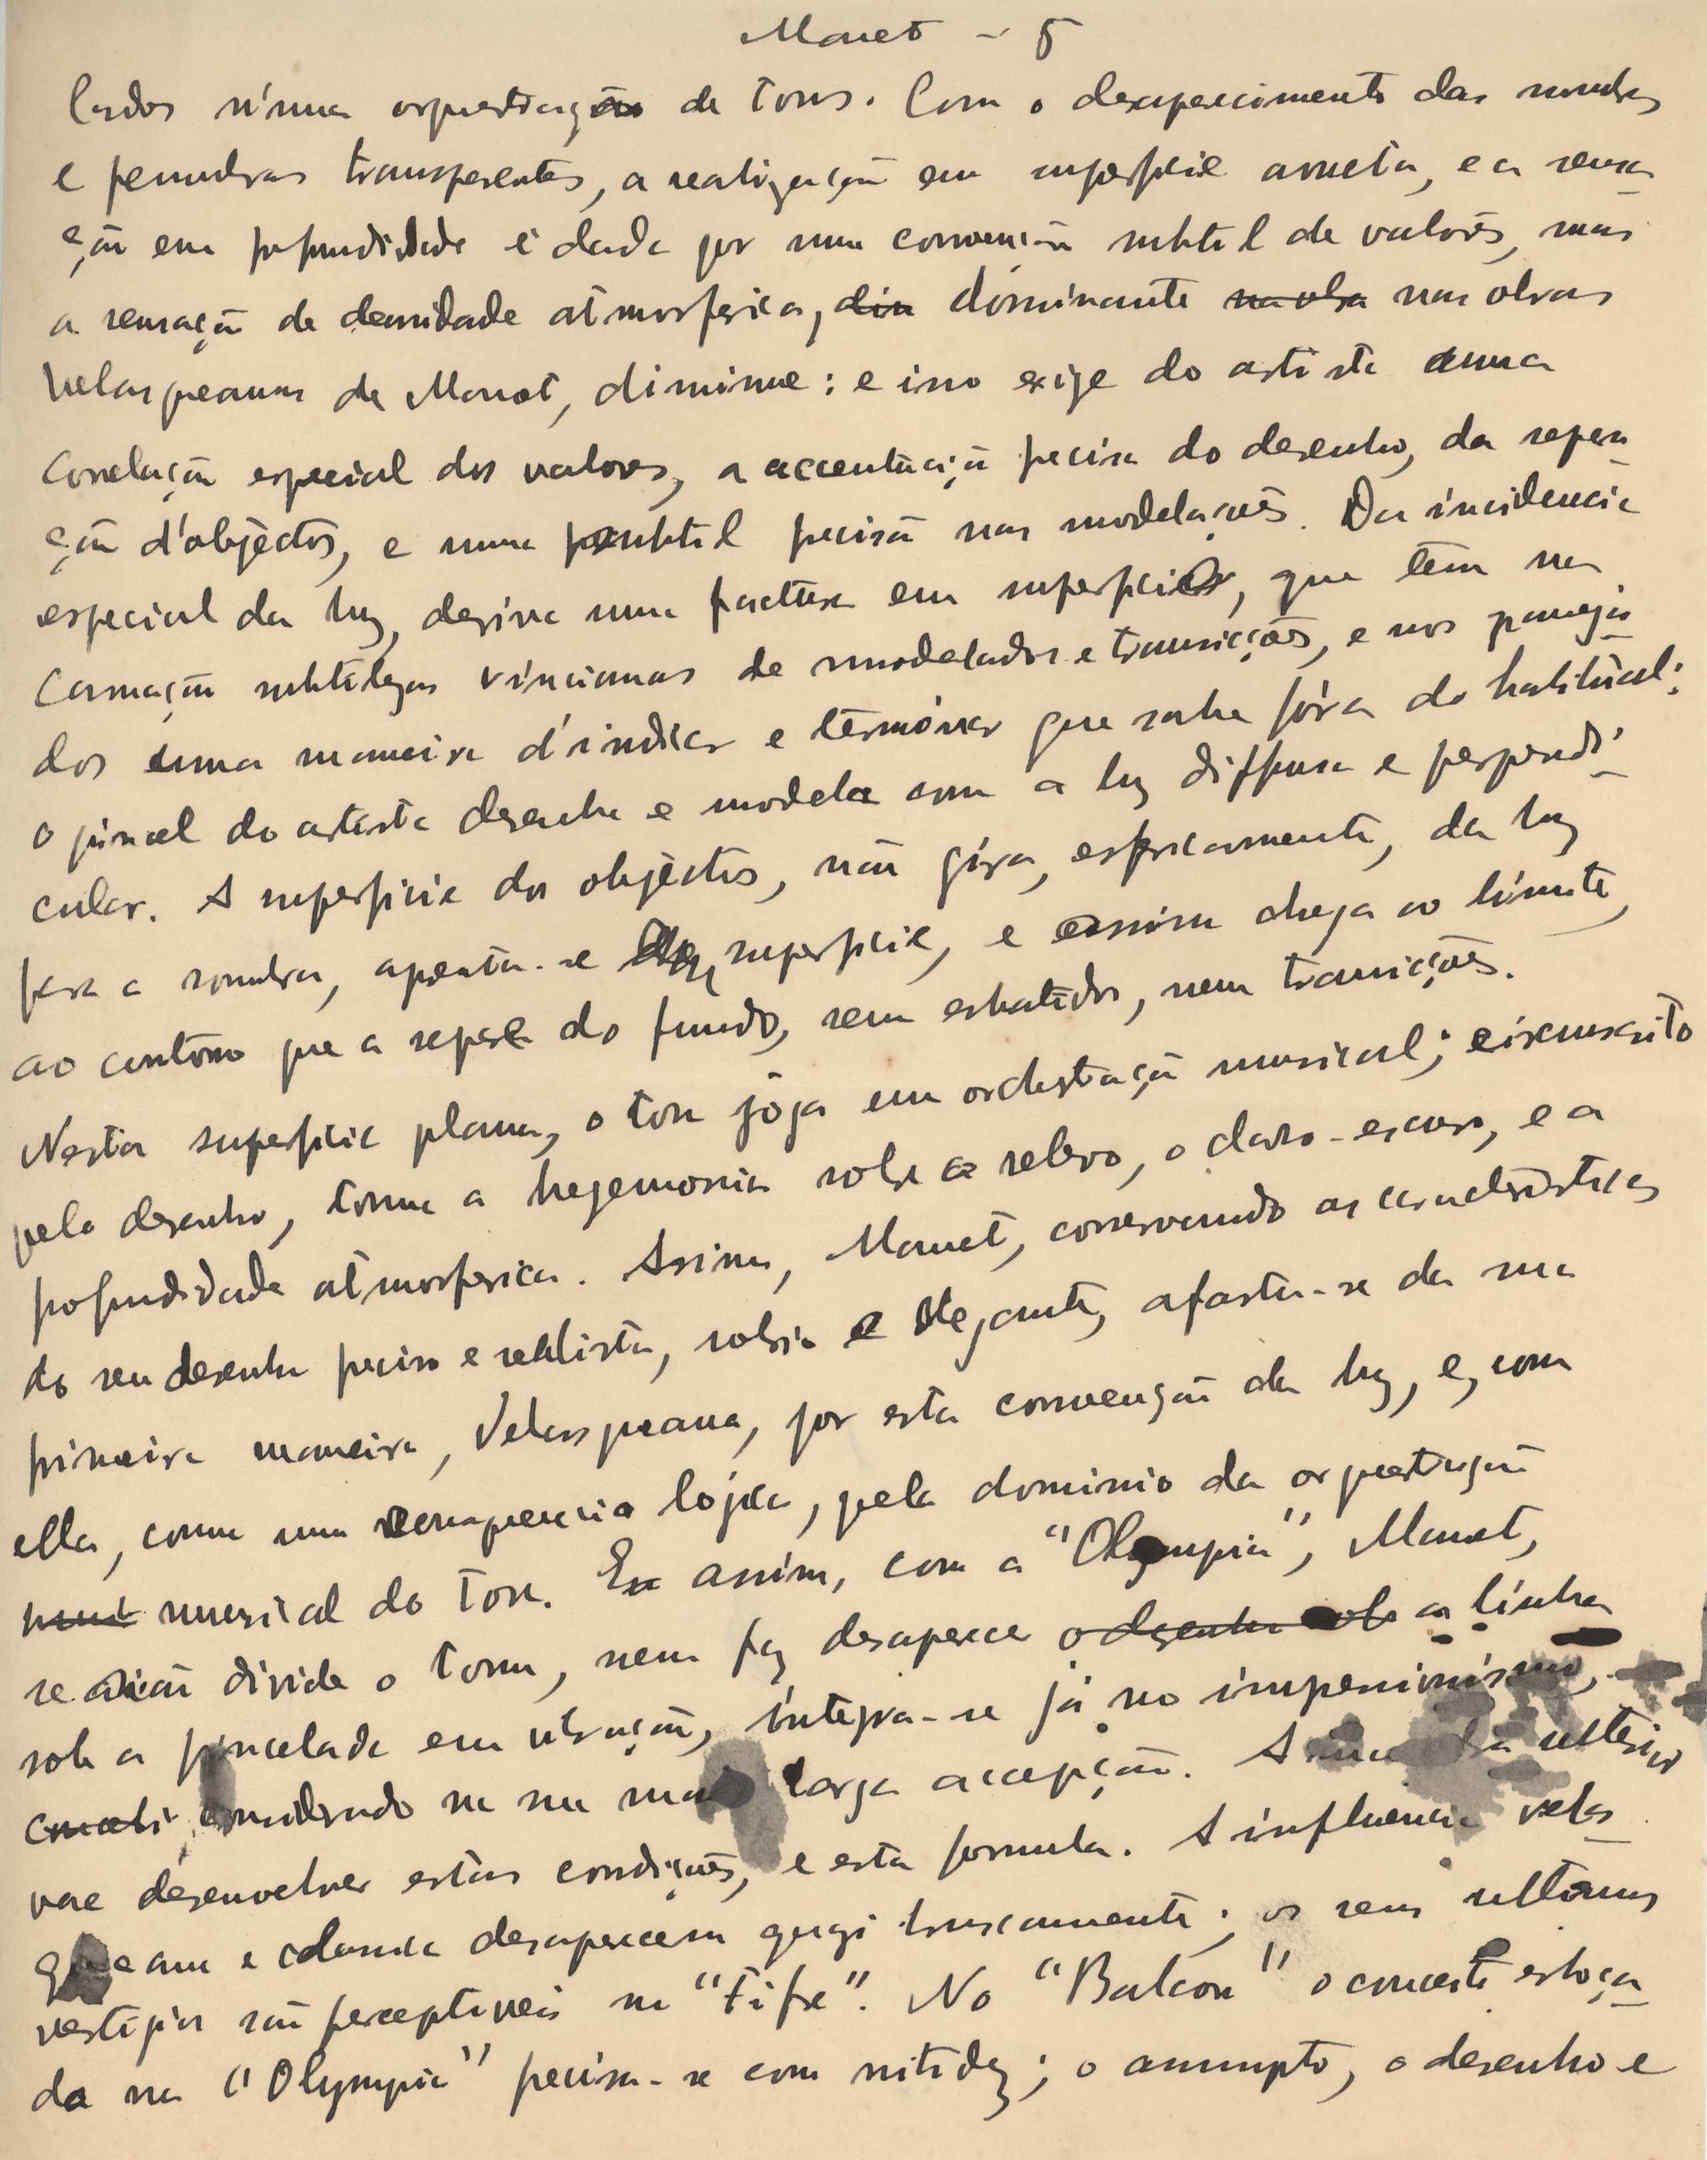 Manet - 5
lados n'uma orquestração de tons. Com o desaparecimento das sombras
e penumbras transparentes, a realização em superficie avulta, e a sensa-
ção em profundidade é dada por uma convenção subtil de valores, mas
a sensação de densidade atmosferica, dominante nas obras
Velasqueanas de Manet, diminue: e isso exige do artista uma
correlação especial dos valores, a accentuação precisa do desenho, da separa-
ção d'objectos, e uma subtil precisão nas modelações. Da incidencia
especial da luz, deriva uma factura em superficie, que têm na
carnação subtilezas vincianas de modelados e transições, e nos paneja-
dos uma maneira d'indicar e terminar que sahe fóra do habitual:
o pincel do artista desenha e modela com a luz diffusa e perpendi-
cular. A superficie dos objectos, não gira, esfericamente, da luz
para a sombra, apresenta-se em superficie, e assim chega ao limite,
ao contorno que a separa do fundo, sem esbatidos, nem transições.
Nesta superficie plana, o tom joga em orchestração musical; circunscrito
pelo desenho, toma a hegemonia sobre o relevo, o claro-escuro, e a
profundidade atmosferica. Assim, Manet, conservando as caracteristicas
do seu desenho preciso e realista, sobrio e elegante, afasta-se da sua
primeira maneira, Velasqueana, por esta convenção da luz, e, com
ella, como uma consequencia lógica, pelo dominio da orquestração
musical do tom. E assim, com a "Olympia", Manet,
se não divide o tom, nem faz desaparecer a linha
sob a pincelada em vibração, integra-se já no impressionismo,
considerado na sua mais larga accepção. A sua obra ulterior
vae desenvolver estas condições, e esta formula. A influencia velas-
queana desaparecem quasi bruscamente; os seus ultimos
vestigios são perceptiveis no "Fifre". No "Balcon" o conceito esboça-
do na "Olympia" precisa-se com nitidez; o assumpto, o desenho e